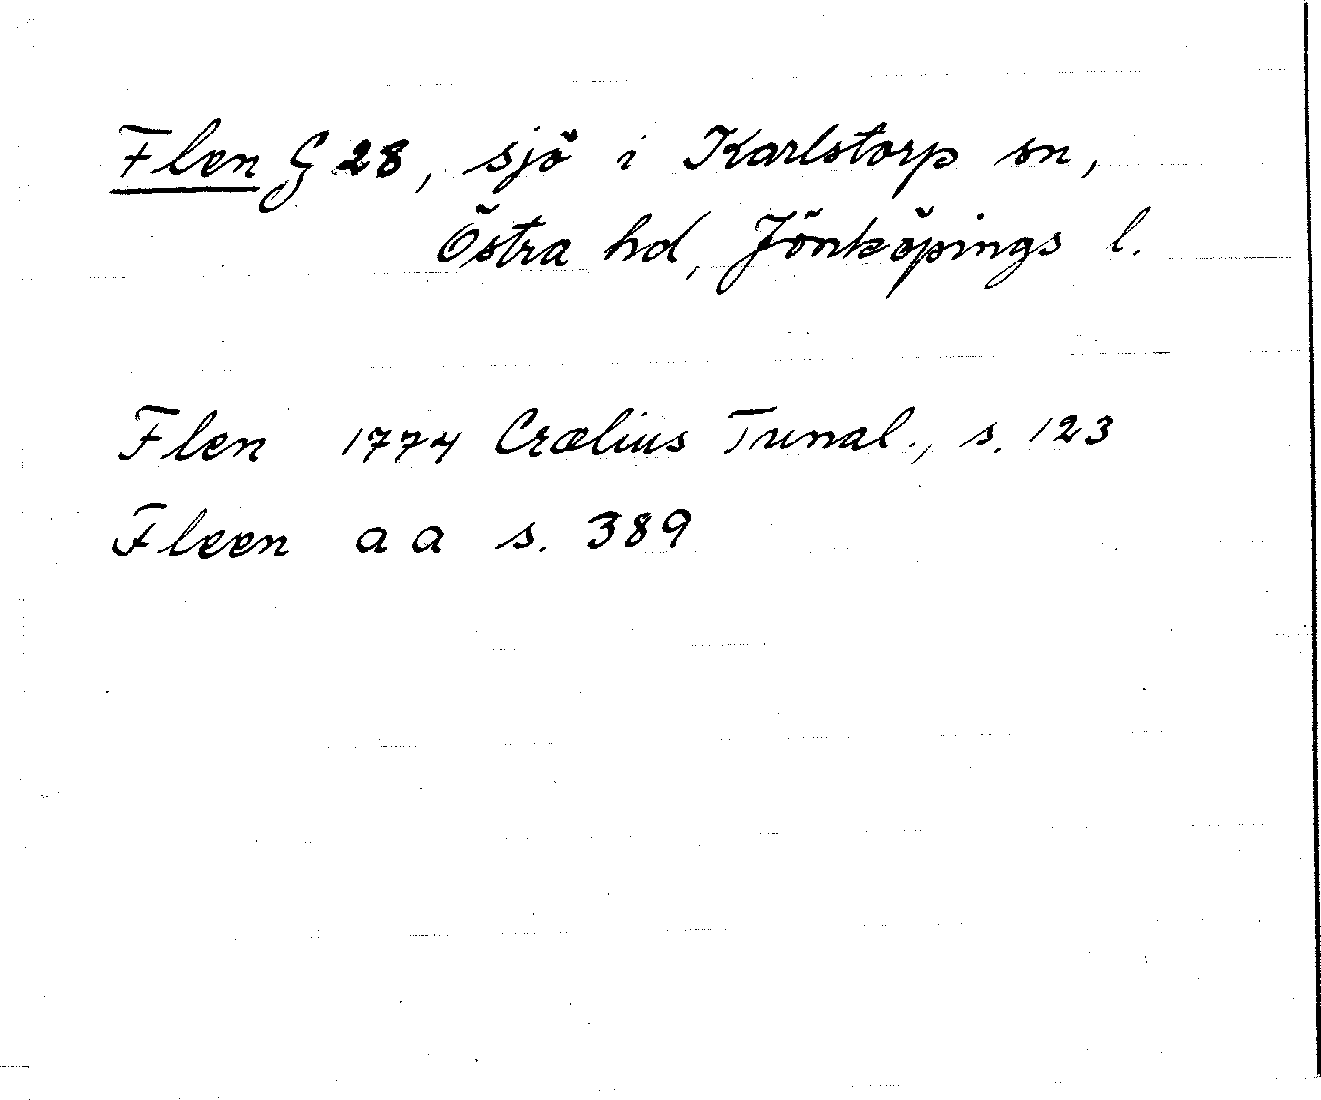 Flen G 28, sjö i Karlstorp sn,
Östra hd, Jönköpings l.
Flen 1774 Crælius Tunal., s. 123
Fleen a a s. 389